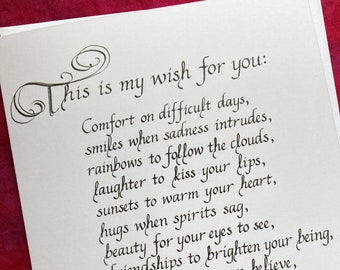 This is my wish for you:
Comfort on difficult days,
smiles when sadness intrudes,
rainbows to follow the clouds,
laughter to kiss your lips,
sunsets to warm your heart,
hugs when spirits sag,
beauty for your eyes to see,
friendships to brighten your being,
believe,